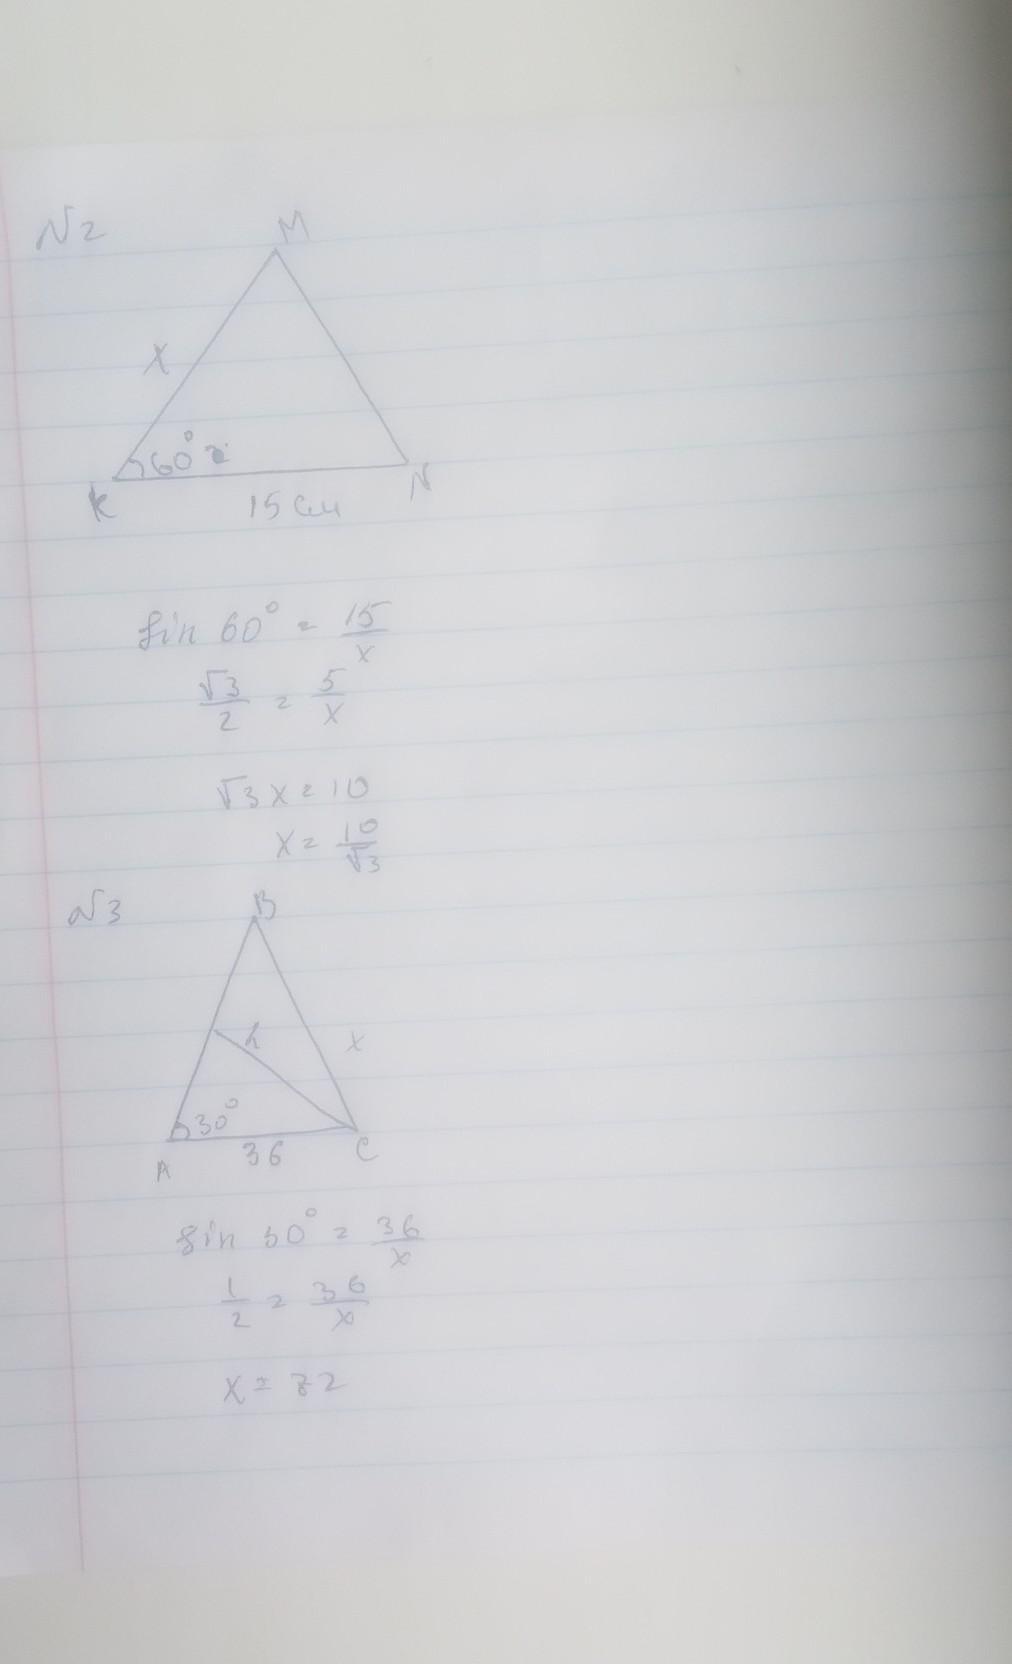 №2
M
x
60°
K
N
15 см
sin 60° = 15/x
√3/2 = 5/x
√3 x = 10
x = 10/√3
№3
B
h
x
30°
A
36
C
sin 30° = 36/x
1/2 = 36/x
x = 72